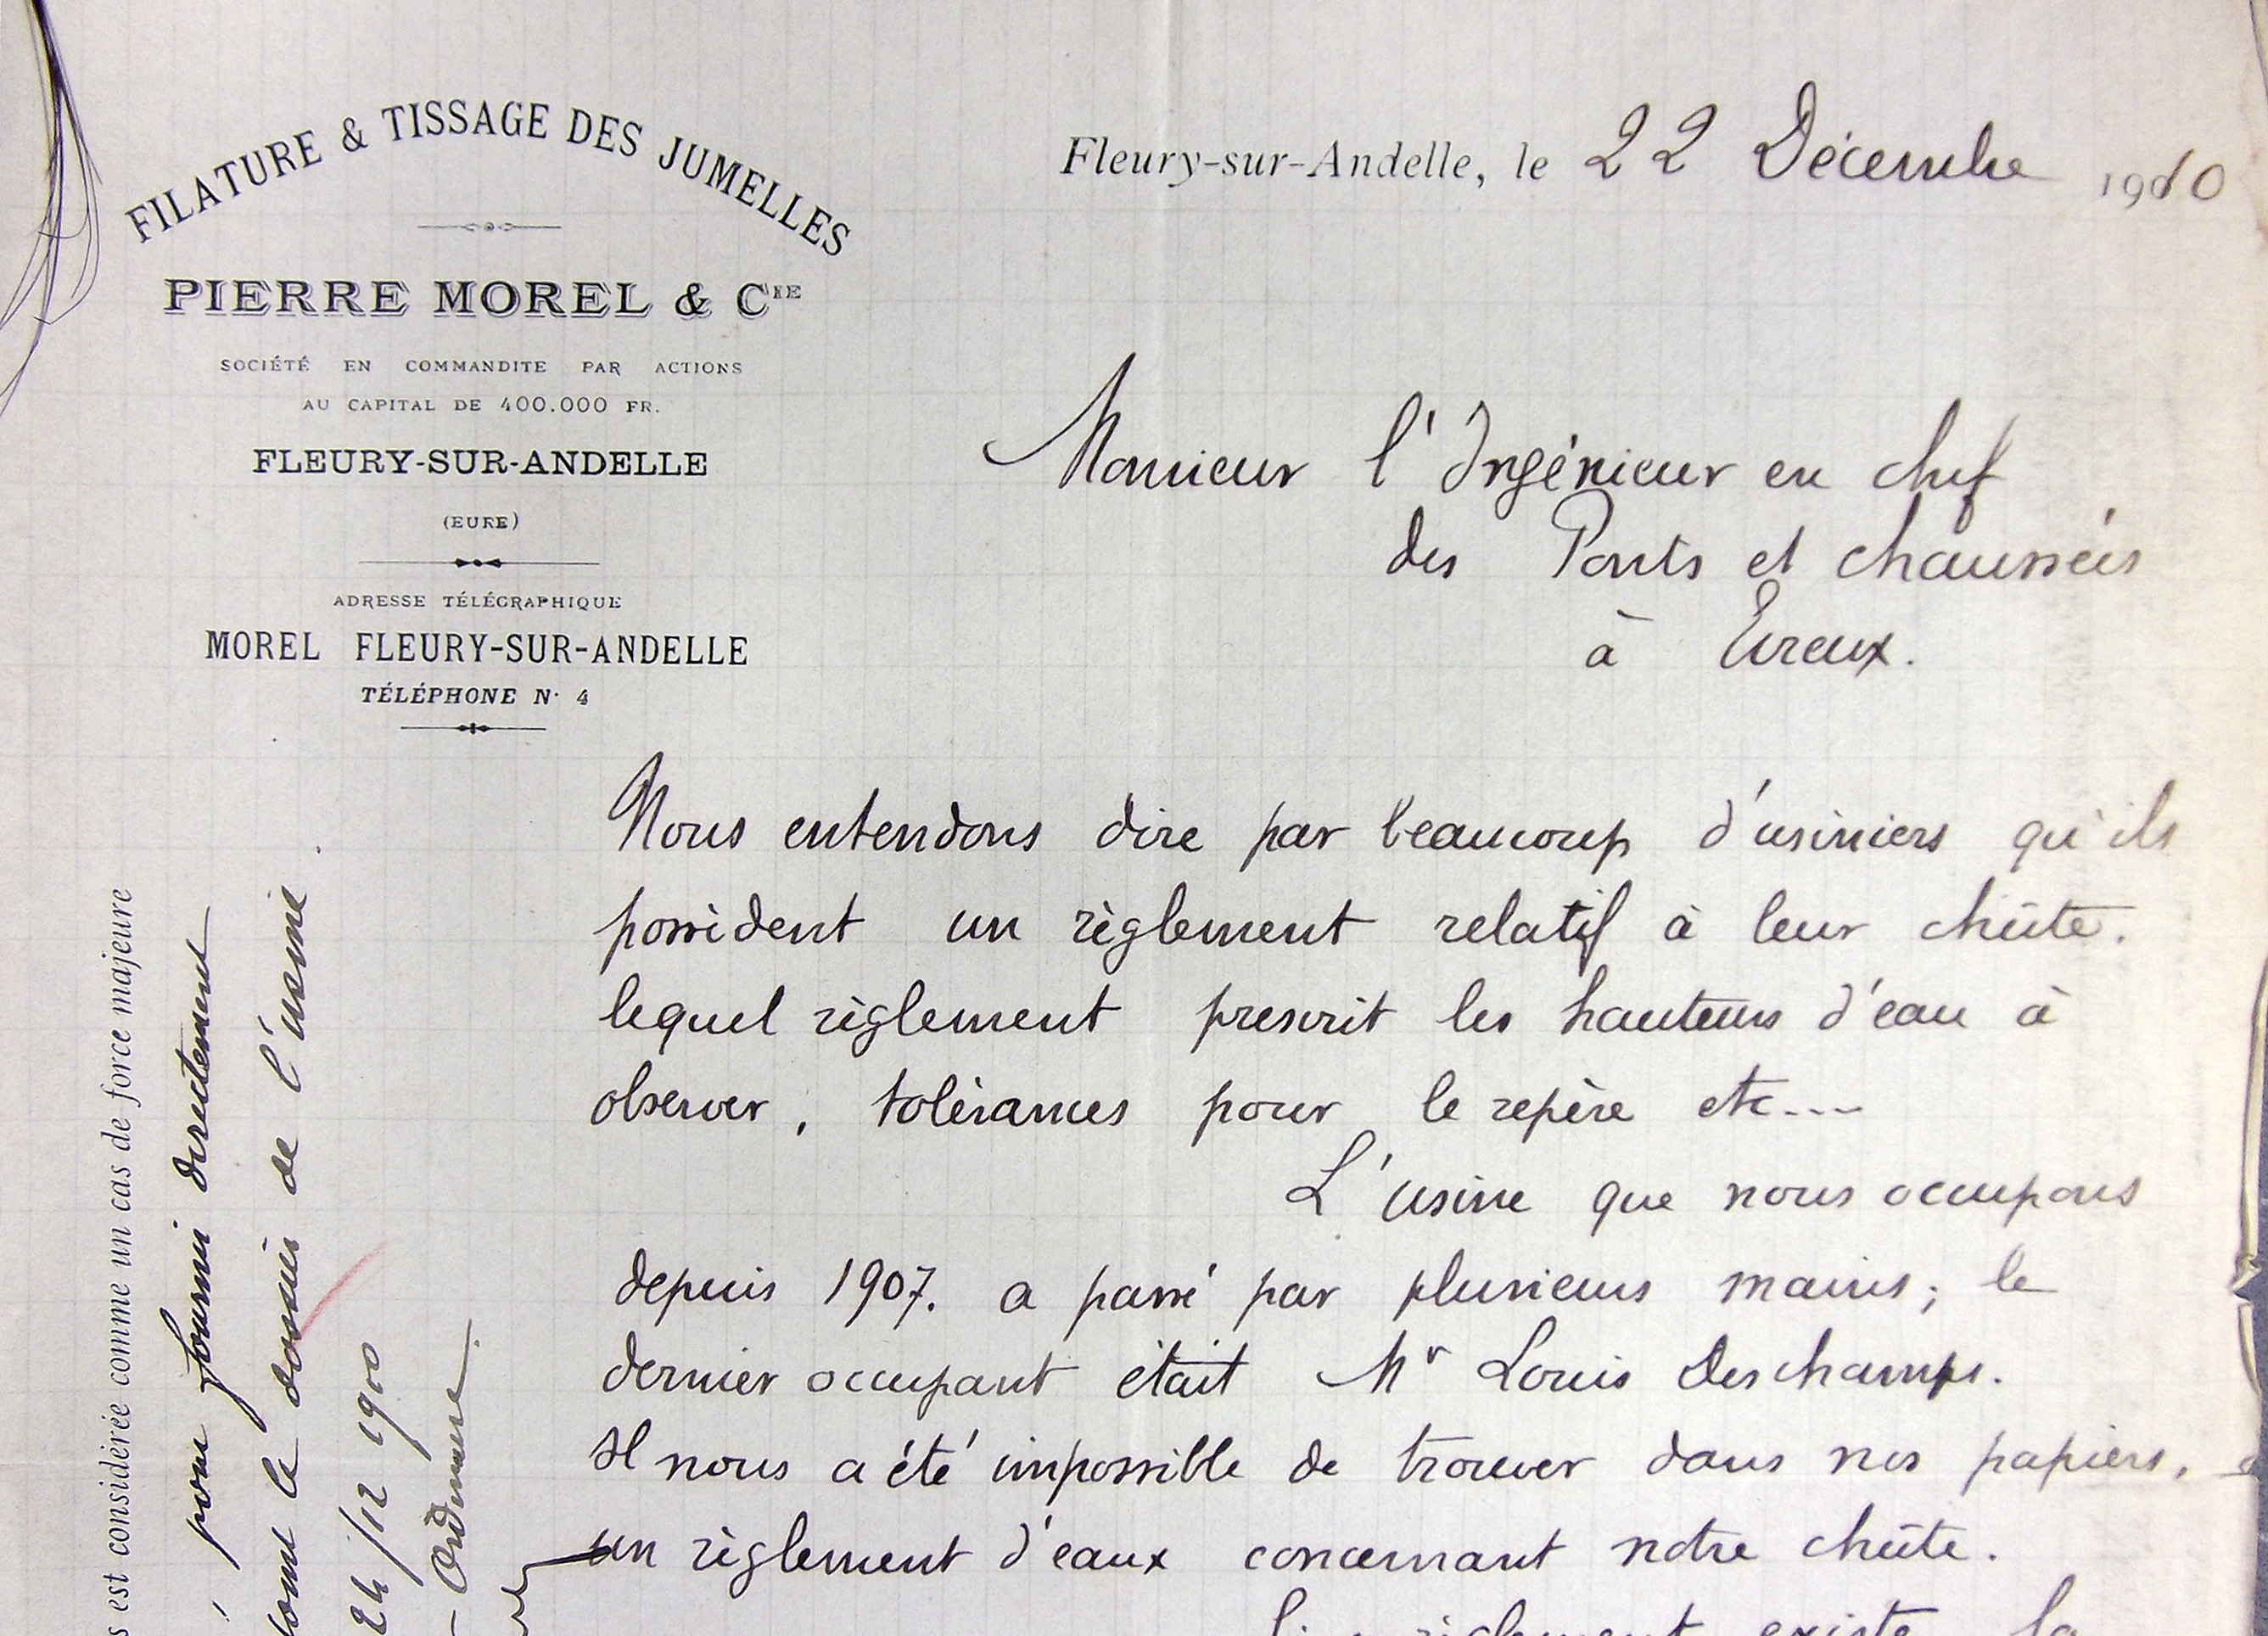 FILATURE & TISSAGE DES JUMELLES
PIERRE MOREL & CIE
SOCIÉTÉ EN COMMANDITE PAR ACTIONS
AU CAPITAL DE 400.000 FR.
FLEURY-SUR-ANDELLE
(EURE)
ADRESSE TÉLÉGRAPHIQUE
MOREL FLEURY-SUR-ANDELLE
TÉLÉPHONE N· 4
Fleury-sur-Andelle, le 22 Décembre 1910
Monsieur l'Ingénieur en chef
des Ponts et chaussées
à Evreux.
Nous entendons dire par beaucoup d'usiniers qu'ils
possèdent un règlement relatif à leur chûte.
lequel règlement prescrit les hauteurs d'eau à
observer, tolérances pour le repère etc....
L'usine que nous occupons
depuis 1907. a passé par plusieurs mains; le
dernier occupant était Mr Louis Deschamps.
Il nous a été impossible de trouver dans nos papiers,
un règlement d'eaux concernant notre chûte.
règlement existe la
s est considérée comme un cas de force majeure
pour fournir directement
le dossier de l'usine
24/12 1910